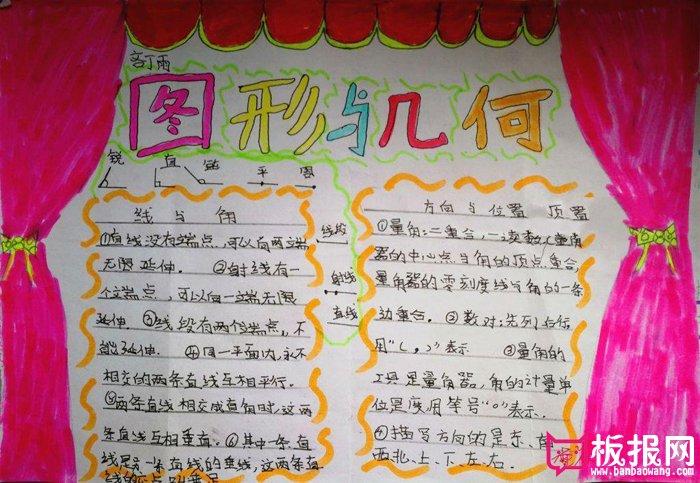 图形与几何
锐 直 钝 平 周
线与角
①直线没有端点，可以向两端
无限延伸．②射线有一
个端点，可以向一端无限
延伸．③线段有两个端点，不
能延伸．④同一平面内，永不
相交的两条直线互相平行．
⑤两条直线相交成直角时，这两
条直线互相垂直．⑥其中一条直
线是另一条直线的垂线，这两条直
线的
线段
射线
直线
方向与位置 顶置
①量角：二重合，一读数（量角
器的中心点与角的顶点重合
量角器的零刻度线与角的一条
边重合．②数对：先列后行
用"( , )"表示 ③量角的
工具是量角器，角的计量单
位是度用符号"°"表示．
④描写方向的是东、
西北、上、下、左、右．
板报网
www.banbaowang.com